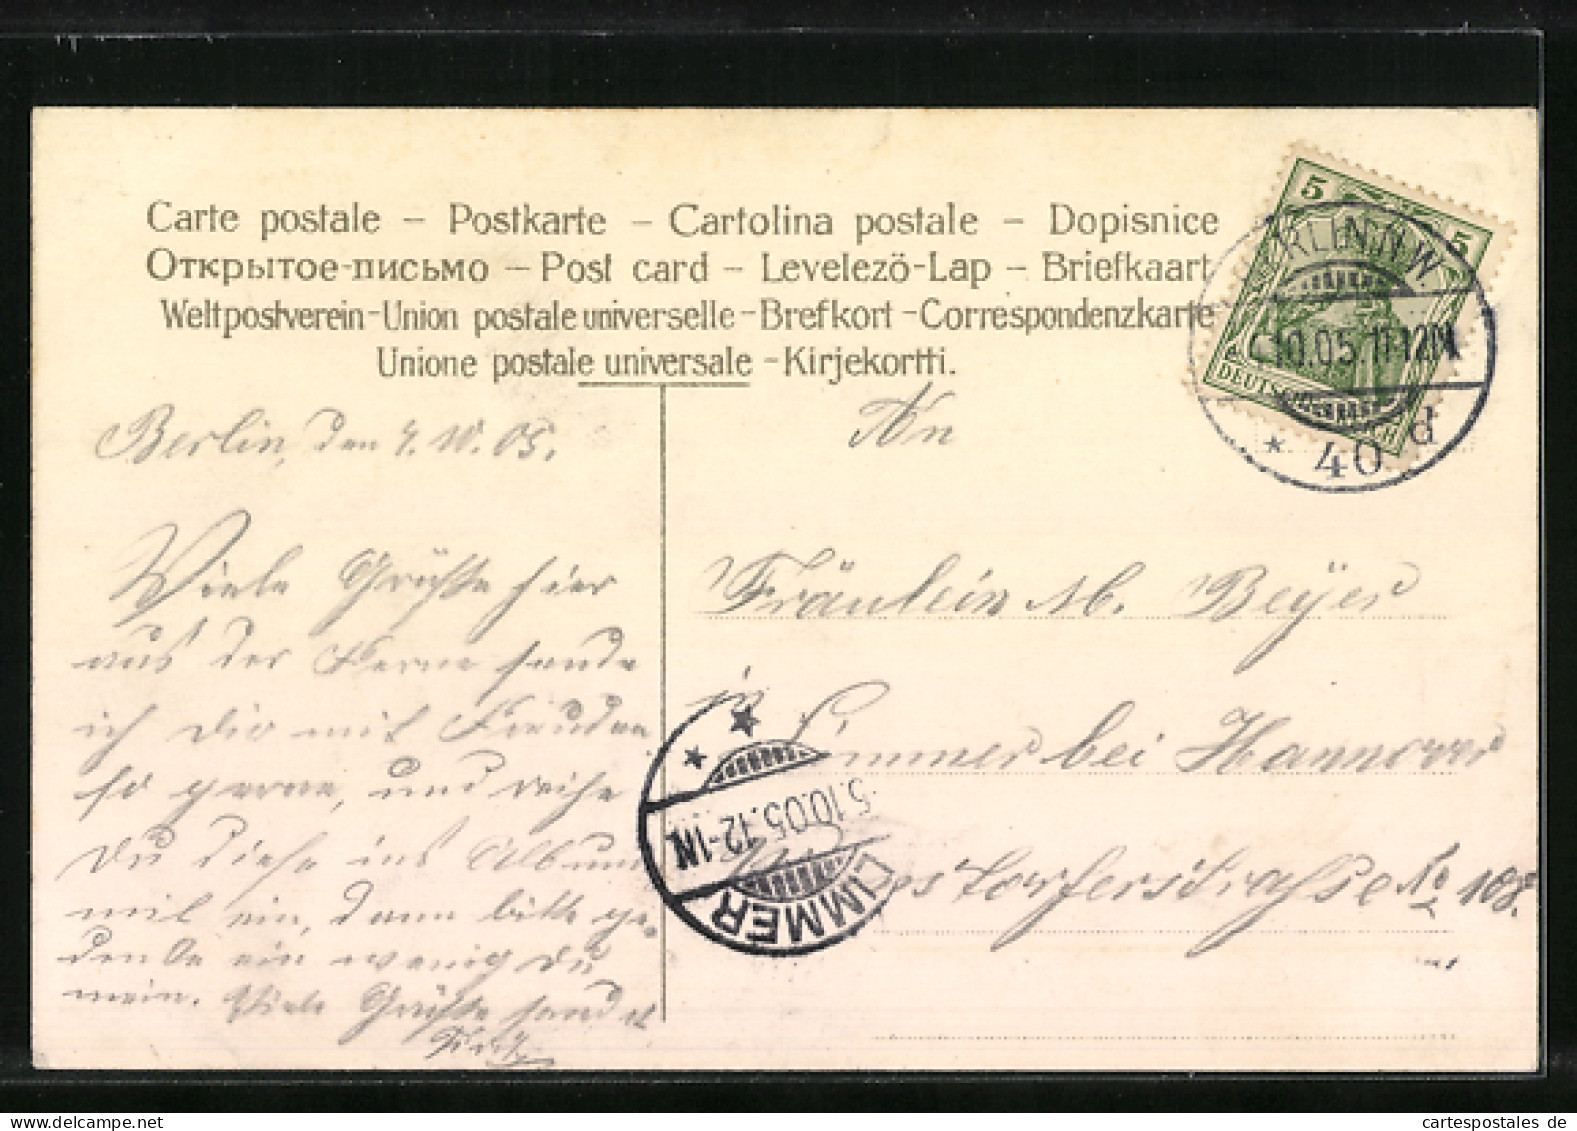 Carte postale – Postkarte – Cartolina postale – Dopisnice
Открытое-письмо – Post card – Levelező-Lap – Briefkaart
Weltpostverein-Union postale universelle-Brefkort-Correspondenzkarte
Unione postale universale -Kirjekortti.
5 5
DEUTSCHES REICH
RLIN N.W.
.10.05.11-12N
* 40 d
Berlin, den 4.10.05.
Viele Grüße hier
aus der Ferne sende
ich dir mit Freuden
so gerne, und
Du diese ins Album
mit ein, dann bitte ge-
denke ein wenig Du
mein. Viele Grüße sendet
Fritz
An
Fräulein M. Beyer
in Limmer bei Hannover
storferstrasse No 108.
LIMMER
5.10.05.12-1N.
cartespostales de